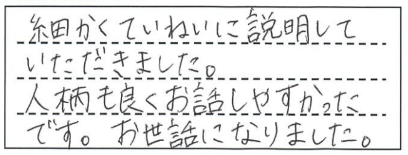 細かくていねいに説明して
いただきました。
人柄も良くお話しやすかった
です。お世話になりました。